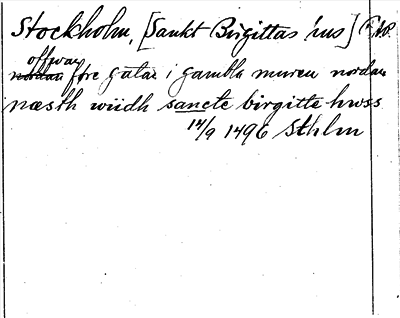 Stockholm, [Sankt Birgittas hus]
offwan
nordan före gatan i gambla muren nordan
næsth wiidh sancte birgitte hwss
14/9 1496 Sthlm